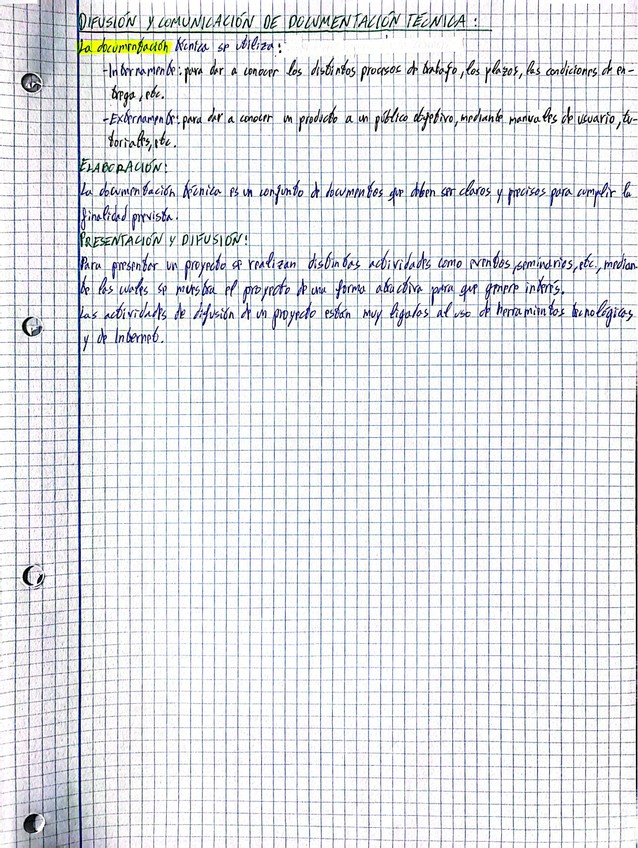 DIFUSIÓN Y COMUNICACIÓN DE DOCUMENTACIÓN TÉCNICA:
La documentación técnica se utiliza:
-Internamente: para dar a conocer los distintos procesos de trabajo, los plazos, las condiciones de en-
trega, etc.
-Externamente: para dar a conocer un producto a un público objetivo, mediante manuales de usuario, tu-
toriales, etc.
ELABORACIÓN:
La documentación técnica es un conjunto de documentos que deben ser claros y precisos para cumplir la
finalidad prevista.
PRESENTACIÓN Y DIFUSIÓN:
Para presentar un proyecto se realizan distintas actividades como eventos, seminarios, etc., median-
te las cuales se muestra el proyecto de una forma atractiva para que genere interés.
Las actividades de difusión de un proyecto están muy ligadas al uso de herramientas tecnológicas
y de Internet.